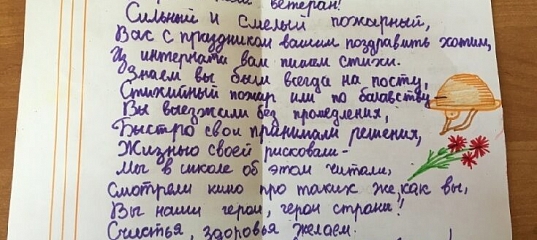 ветеран!
Сильный и смелый пожарный,
Вас с праздником вашим поздравить хотим,
Из интерната вам пишем стихи.
Знаем вы были всегда на посту,
Стихийный пожар или по баловству
Вы выезжали без промедления,
Быстро свои принимали решения,
Жизнью своей рисковали-
Мы в школе об этом читали,
Смотрели кино про таких же, как вы,
Вы наши герои, герои страны!
Счастья, здоровья желаем.